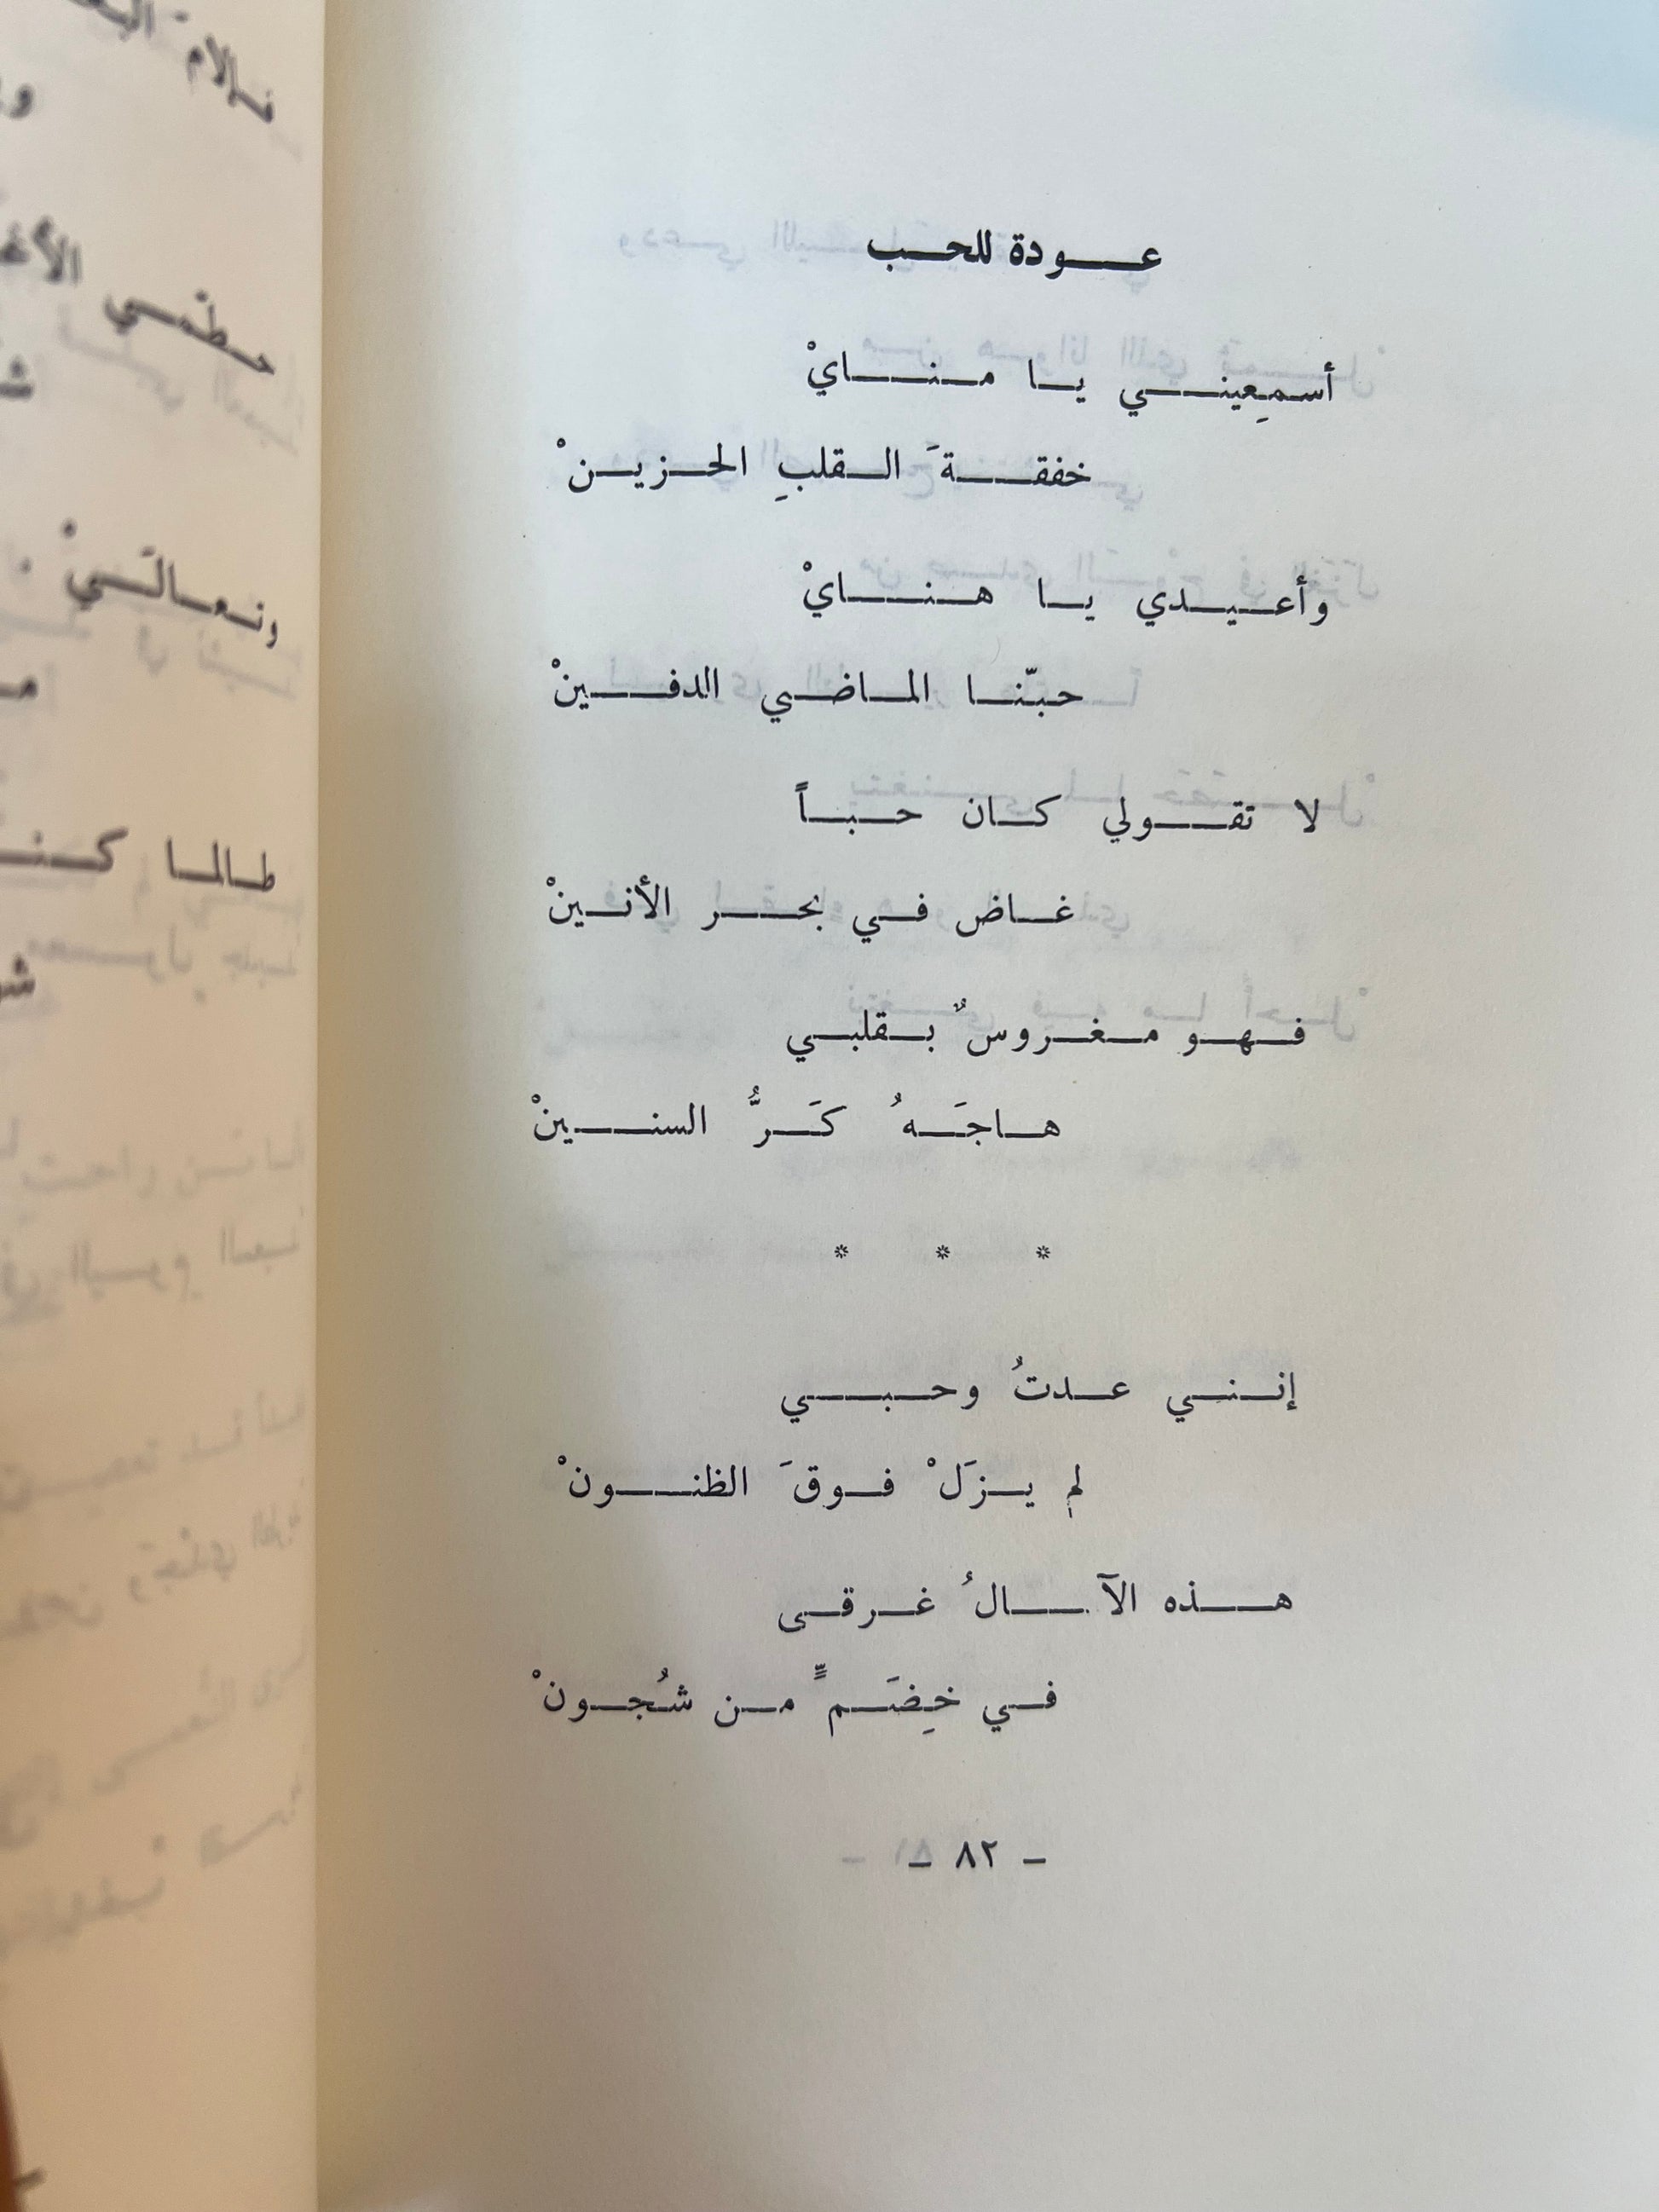 عودة للحب
أسمِعيني يا منايْ
خفقةَ القلبِ الحزينْ
وأعيدي يا هنايْ
حبّنا الماضي الدفينْ
لا تقولي كان حباً
غاض في بحر الأنينْ
فهو مغروسٌ بقلبي
هاجَهُ كَرُّ السنينْ
* * *
إنني عدتُ وحبي
لم يزَلْ فوقَ الظنونْ
هذه الآمالُ غرقى
في خِضَمٍّ من شُجونْ
- ٨٢ -
حطمي
وتعالَيْ
طالما